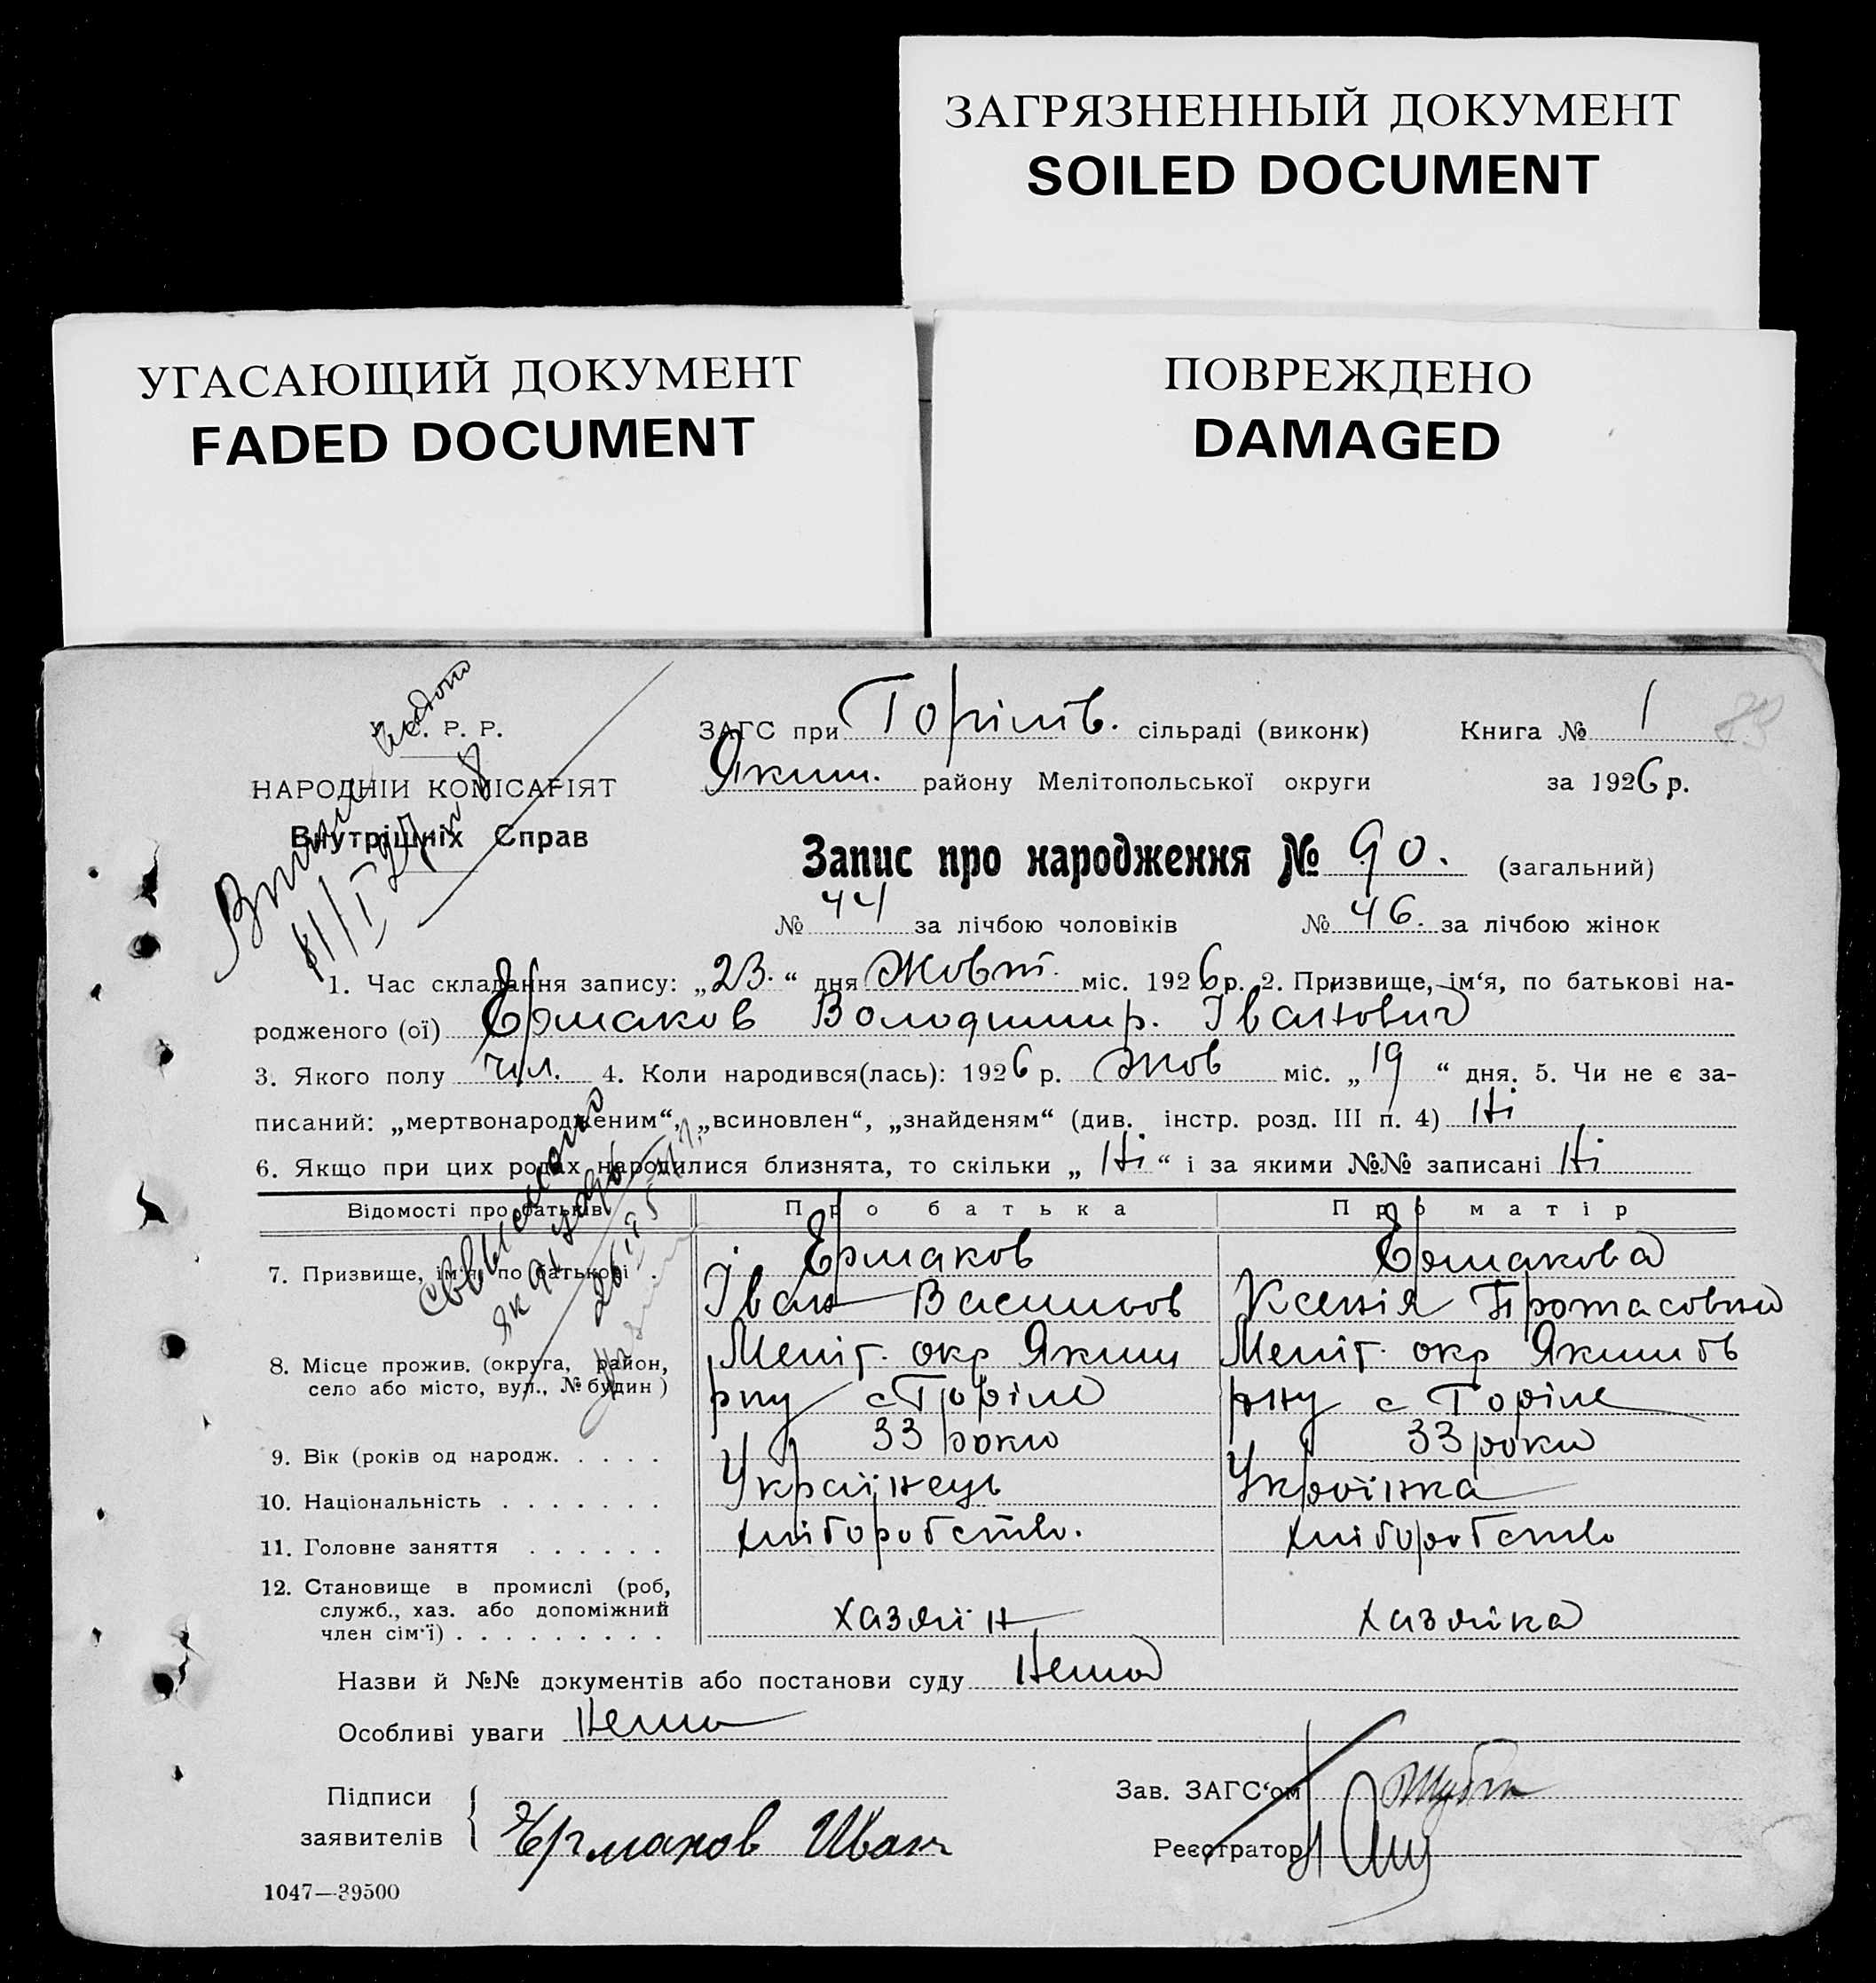 ЗАГРЯЗНЕННЫЙ ДОКУМЕНТ
SOILED DOCUMENT
УГАСАЮЩИЙ ДОКУМЕНТ
FADED DOCUMENT
ПОВРЕЖДЕНО
DAMAGED
У. С. Р. Р.
НАРОДНІЙ КОМІСАРІЯТ
Внутрішніх Справ
ЗАГС при Горілів. сільраді (виконк) Книга № 1
Яким. району Мелітопольської округи за 1926 р.
Запис про народження № 90. (загальний)
№ 44 за лічбою чоловіків № 46. за лічбою жінок
1. Час складання запису: „23.“ дня Жовт. міс. 1926 р. 2. Призвище, ім‘я, по батькові на-
родженого (ої) Єрмаков Володимир. Іванович
3. Якого полу чол. 4. Коли народився(лась): 1926 р. Жов міс. „19“ дня. 5. Чи не є за-
писаний: „мертвонародженим“, „всиновлен“, „знайденям“ (див. інстр. розд. III п. 4) Ні
6. Якщо при цих родах народилися близнята, то скільки „Ні“ і за якими №№ записані Ні
Відомості про батьків Про батька Про матір
7. Призвище, ім‘я, по батькові . Єрмаков Єрмакова
Іван Васильов Ксенія Протасовна
8. Місце прожив. (округа, район, Меліт. окр Яким Меліт. окр Яким
село або місто, вул., № будин) рну с Горіле рну с Горіле
9. Вік (років од народж. . . . . 33 роки 33 роки
10. Національність . . . . . . . Українець Українка
11. Головне заняття . . . . . . хліборобство. хліборобство
12. Становище в промислі (роб,
служб., хаз. або допоміжний
член сім‘ї) . . . . . . . . . хазяїн хазяйка
Назви й №№ документів або постанови суду Нема
Особливі уваги Нема
Підписи
заявителів Ермаков Иван
Зав. ЗАГС‘ом
Реєстратор
1047—39500